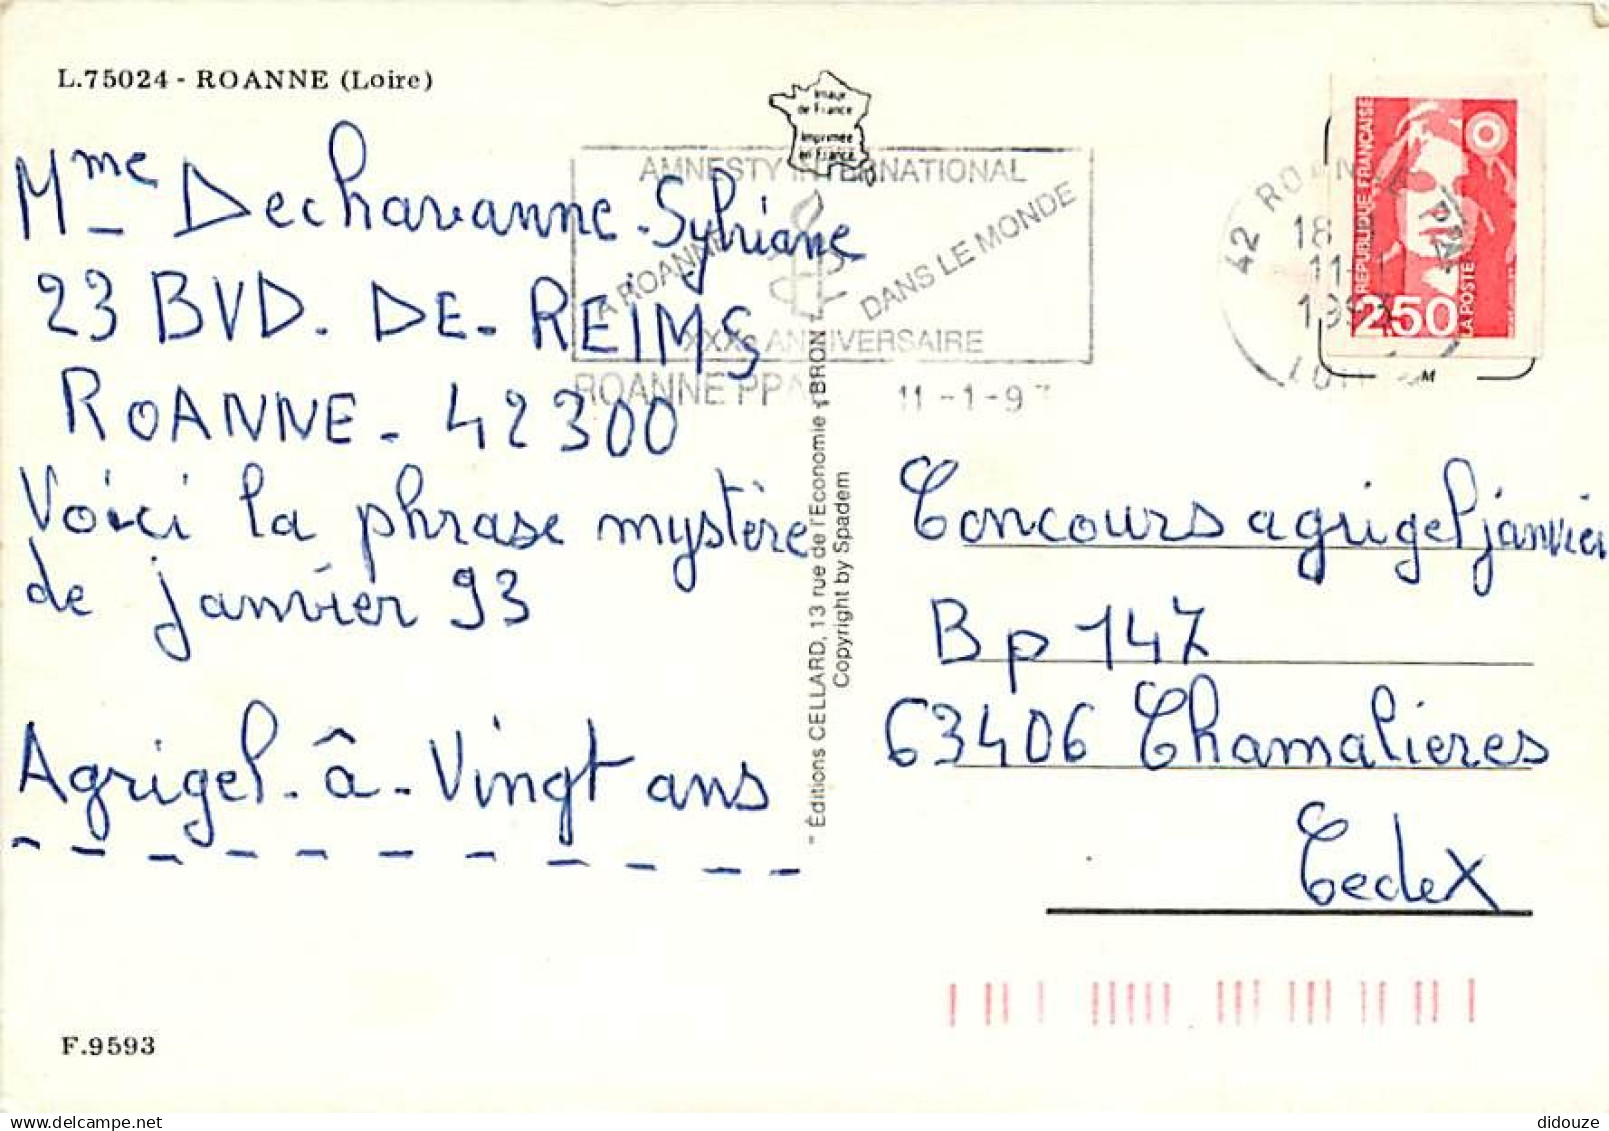 L.75024 - ROANNE (Loire)
Image
de France
Imprimée
en France
Mme Dechavanne-Sylviane
23 BVD. DE-REIMS
ROANNE - 42300
Voici la phrase mystère
de janvier 93
Agrigel-â-Vingt ans
F.9593
AMNESTY INTERNATIONAL
A ROANNE
DANS LE MONDE
XXXe ANNIVERSAIRE
ROANNE PPAL
11-1-9
42 ROANNE PPAL
18
11
RÉPUBLIQUE FRANÇAISE
2,50
LA POSTE
M
" Éditions CELLARD, 13 rue de l'Économie - BRON
Copyright by Spadem
Concours agrigel janvier
Bp 147
63406 Chamalieres
Cedex
didouze